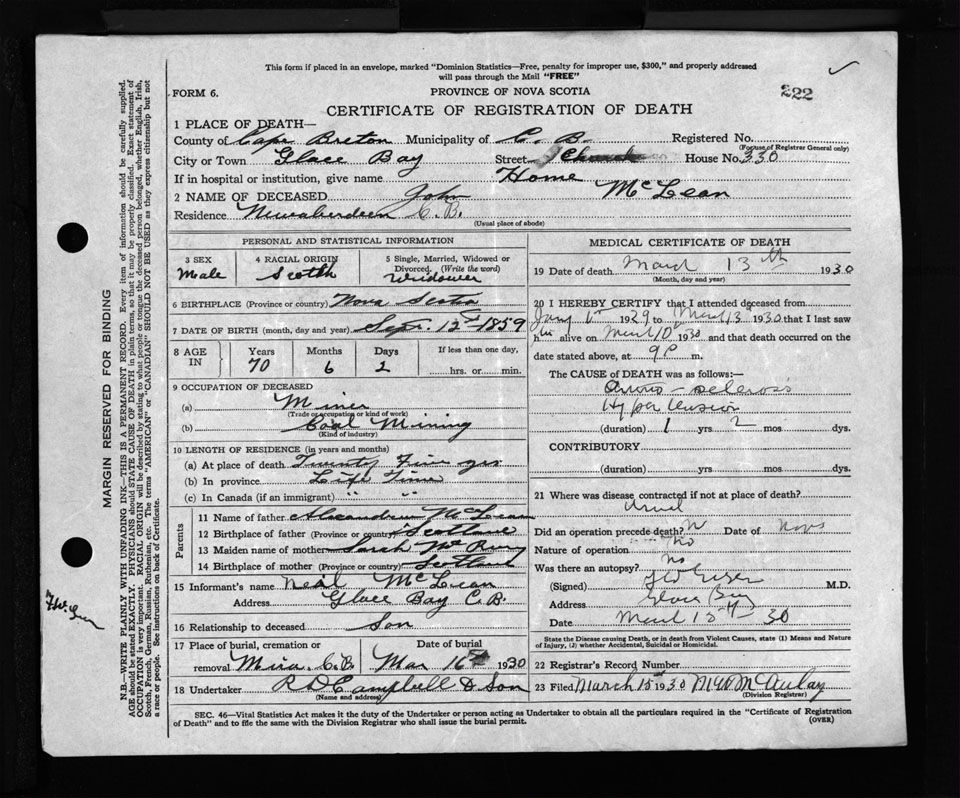 This form if placed in an envelope, marked "Dominion Statistics—Free, penalty for improper use, $300," and properly addressed
will pass through the Mail "FREE"
FORM 6.
PROVINCE OF NOVA SCOTIA
222
CERTIFICATE OF REGISTRATION OF DEATH
1 PLACE OF DEATH—
County of Cape Breton Municipality of C. B. Registered No.
(For use of Registrar General only)
City or Town Glace Bay Street House No. 330
If in hospital or institution, give name Home
2 NAME OF DECEASED John McLean
Residence Newaberdeen C.B.
(Usual place of abode)
PERSONAL AND STATISTICAL INFORMATION
3 SEX
Male
4 RACIAL ORIGIN
Scotch
5 Single, Married, Widowed or
Divorced. (Write the word)
Widower
6 BIRTHPLACE (Province or country) Nova Scotia
7 DATE OF BIRTH (month, day and year) Sept. 12th 1859
8 AGE IN
Years Months Days If less than one day,
70 6 2 hrs. or min.
9 OCCUPATION OF DECEASED
(a) Miner
(Trade or occupation or kind of work)
(b) Coal Mining
(Kind of industry)
10 LENGTH OF RESIDENCE (in years and months)
(a) At place of death Twenty Five yrs
(b) In province Life Time
(c) In Canada (if an immigrant) " "
Parents
11 Name of father McLean
12 Birthplace of father (Province or country) Scotland
13 Maiden name of mother Sarah
14 Birthplace of mother (Province or country) Scotland
15 Informant's name Neil McLean
Address Glace Bay C.B.
16 Relationship to deceased Son
17 Place of burial, cremation or Date of burial
removal Mira. C.B. Mar 16th 1930
18 Undertaker R D Campbell & Son
(Name and address)
MEDICAL CERTIFICATE OF DEATH
19 Date of death March 13th 1930
(Month, day and year)
20 I HEREBY CERTIFY that I attended deceased from
1929 to March 13 1930 that I last saw
him alive on March 10 1930 and that death occurred on the
date stated above, at 9 P m.
The CAUSE of DEATH was as follows:—
Arterio-sclerosis
Hypertension
(duration) 1 yrs 2 mos dys.
CONTRIBUTORY
(duration) yrs. mos. dys.
21 Where was disease contracted if not at place of death?
Did an operation precede death? N Date of
Nature of operation no
Was there an autopsy? No
(Signed) M.D.
Address Glace Bay
Date March 30
State the Disease causing Death, or in death from Violent Causes, state (1) Means and Nature
of Injury, (2) whether Accidental, Suicidal or Homicidal.
22 Registrar's Record Number
23 Filed March 15 1930 McAulay
(Division Registrar)
SEC. 46—Vital Statistics Act makes it the duty of the Undertaker or person acting as Undertaker to obtain all the particulars required in the "Certificate of Registration
of Death" and to file the same with the Division Registrar who shall issue the burial permit.
(OVER)
MARGIN RESERVED FOR BINDING
N.B.—WRITE PLAINLY WITH UNFADING INK—THIS IS A PERMANENT RECORD. Every item of information should be carefully supplied.
AGE should be stated EXACTLY. PHYSICIANS should STATE CAUSE OF DEATH in plain terms, so that it may be properly classified. Exact statement of
OCCUPATION is very important. RACIAL ORIGIN will be described by stating to what people or tongue the deceased person belonged, whether English, Irish,
Scotch, French, German, Russian, Ruthenian, etc. The terms "AMERICAN" or "CANADIAN" SHOULD NOT BE USED as they express citizenship but not
a race or people. See instructions on back of Certificate.